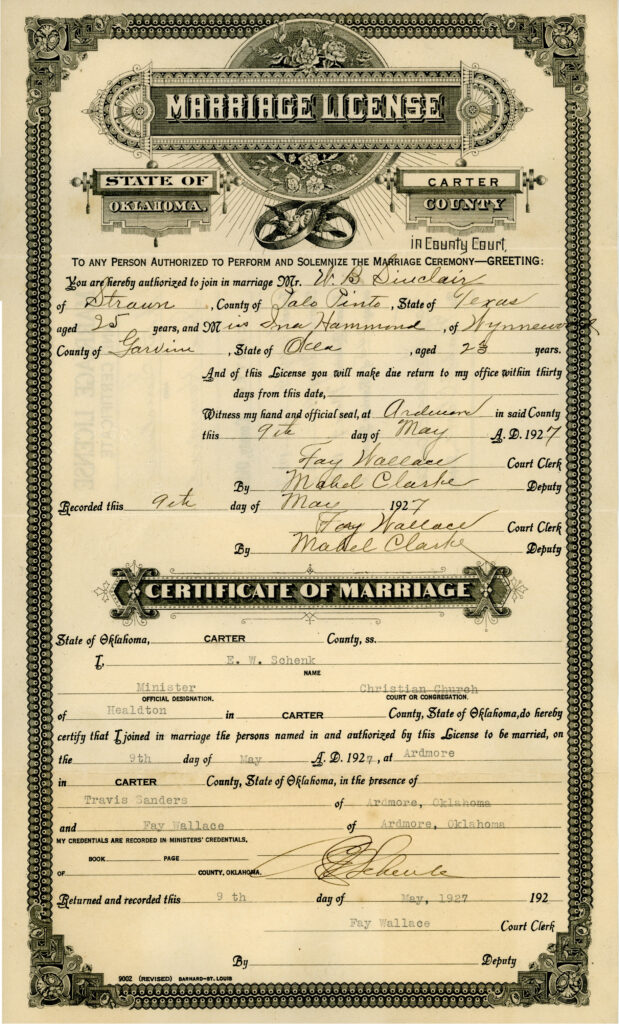 MARRIAGE LICENSE
STATE OF OKLAHOMA.
CARTER COUNTY
in County Court,
TO ANY PERSON AUTHORIZED TO PERFORM AND SOLEMNIZE THE MARRIAGE CEREMONY—GREETING:
You are hereby authorized to join in marriage Mr. W. B. Sinclair
of Strawn, County of Palo Pinto, State of Texas
aged 25 years, and Miss Ina Hammond, of Wynnewood
County of Garvin, State of Okla, aged 23 years.
And of this License you will make due return to my office within thirty
days from this date,
Witness my hand and official seal, at Ardmore in said County
this 9th day of May A. D. 1927
Fay Wallace Court Clerk
By Mabel Clarke Deputy
Recorded this 9th day of May 1927
Fay Wallace Court Clerk
By Mabel Clarke Deputy
CERTIFICATE OF MARRIAGE
State of Oklahoma, CARTER County, ss.
I, E. W. Schenk
NAME
Minister Christian Church
OFFICIAL DESIGNATION. COURT OR CONGREGATION.
of Healdton in CARTER County, State of Oklahoma, do hereby
certify that I joined in marriage the persons named in and authorized by this License to be married, on
the 9th day of May A. D. 1927, at Ardmore
in CARTER County, State of Oklahoma, in the presence of
Travis Sanders of Ardmore, Oklahoma
and Fay Wallace of Ardmore, Oklahoma
MY CREDENTIALS ARE RECORDED IN MINISTERS' CREDENTIALS,
BOOK PAGE
OF COUNTY, OKLAHOMA. Schenk
Returned and recorded this 9 th day of May, 1927 192
Fay Wallace Court Clerk
By Deputy
9002 (REVISED) BARNARD-ST. LOUIS